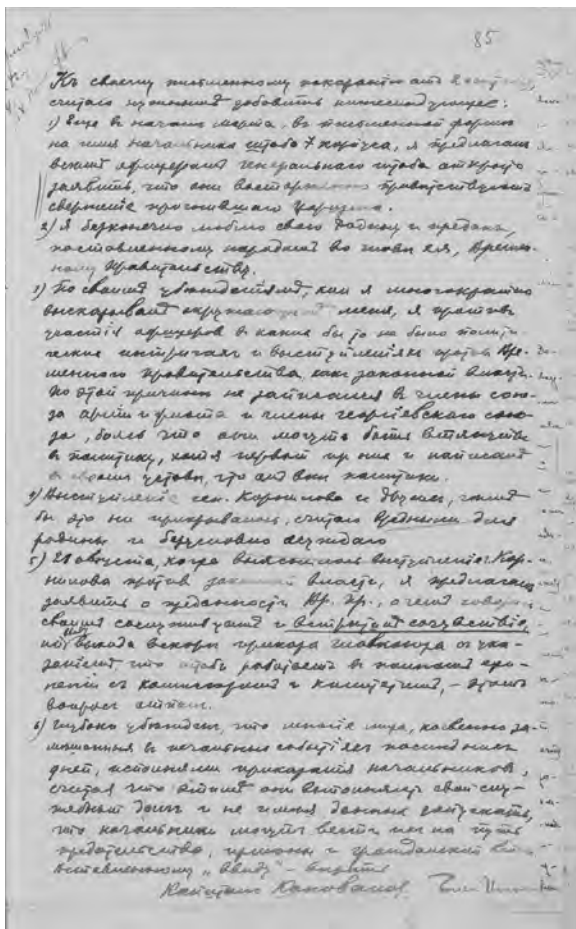 85
Къ своему письменному показанію отъ 2 сентября
считаю нужнымъ добавить нижеслѣдующее:
1) Еще в началѣ марта, въ письменной формѣ
на имя начальника штаба 7 корпуса, я предлагалъ
всѣмъ офицерамъ генеральнаго штаба открыто
заявить, что они восторженно привѣтствуютъ
сверженіе прогнившаго
2) Я безконечно люблю свою Родину и преданъ,
поставленному народомъ во главѣ ея, Времен-
ному Правительству.
3) По своимъ убѣжденіямъ, как я многократно
высказывалъ окружающимъ меня, я противъ
участія офицеров в каких бы то ни было полити-
ческих интригах и выступленіях против Вре-
меннаго правительства как законной власти.
По этой причинѣ не записался в члены сою-
за арміи и флота и члены георгіевскаго сою-
за, боясь что они могутъ быть втянуты
в политику, хотя первый из них и написалъ
в своемъ уставѣ, что онъ внѣ политики.
4) Выступленіе ген. Корнилова и других, чѣмъ
бы это ни прикрывалось, считаю вреднымъ для
родины и безусловно осуждаю
5) 28 августа, когда выяснилось выступленіе Кор-
нилова против законной власти, я предлагалъ
заявить о преданности Вр. Пр., о чемъ говорилъ
своимъ сослуживцамъ и встрѣтилъ сочувствіе,
но выхода вскорѣ приказа главкоюза с ука-
заніемъ, что штабъ работаетъ в полномъ еди-
неніи съ комиссаромъ и комитетомъ, - этотъ
вопросъ отпалъ.
6) Глубоко убѣжденъ, что многіе лица, косвенно за-
мѣшанныя в печальных событіях послѣдних
дней, исполняли приказанія начальников,
считая что этимъ они выполняютъ свой слу-
жебный долгъ и не имѣя данных допускать,
что начальники могутъ вести их на путь
предательства, и гражданской
"Ввиду" -
Капитанъ Коновалов